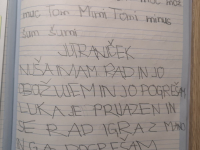 muc Tom Mimi Tomi minus
sum šumi
JURANIČEK
NUŠA IMAM RAD IN JO
OBOŽUJEM IN JO POGREŠAM
LUKA JE PRIJAZEN IN
SE RAD IGRA Z MANO
IN GA POGREŠAM